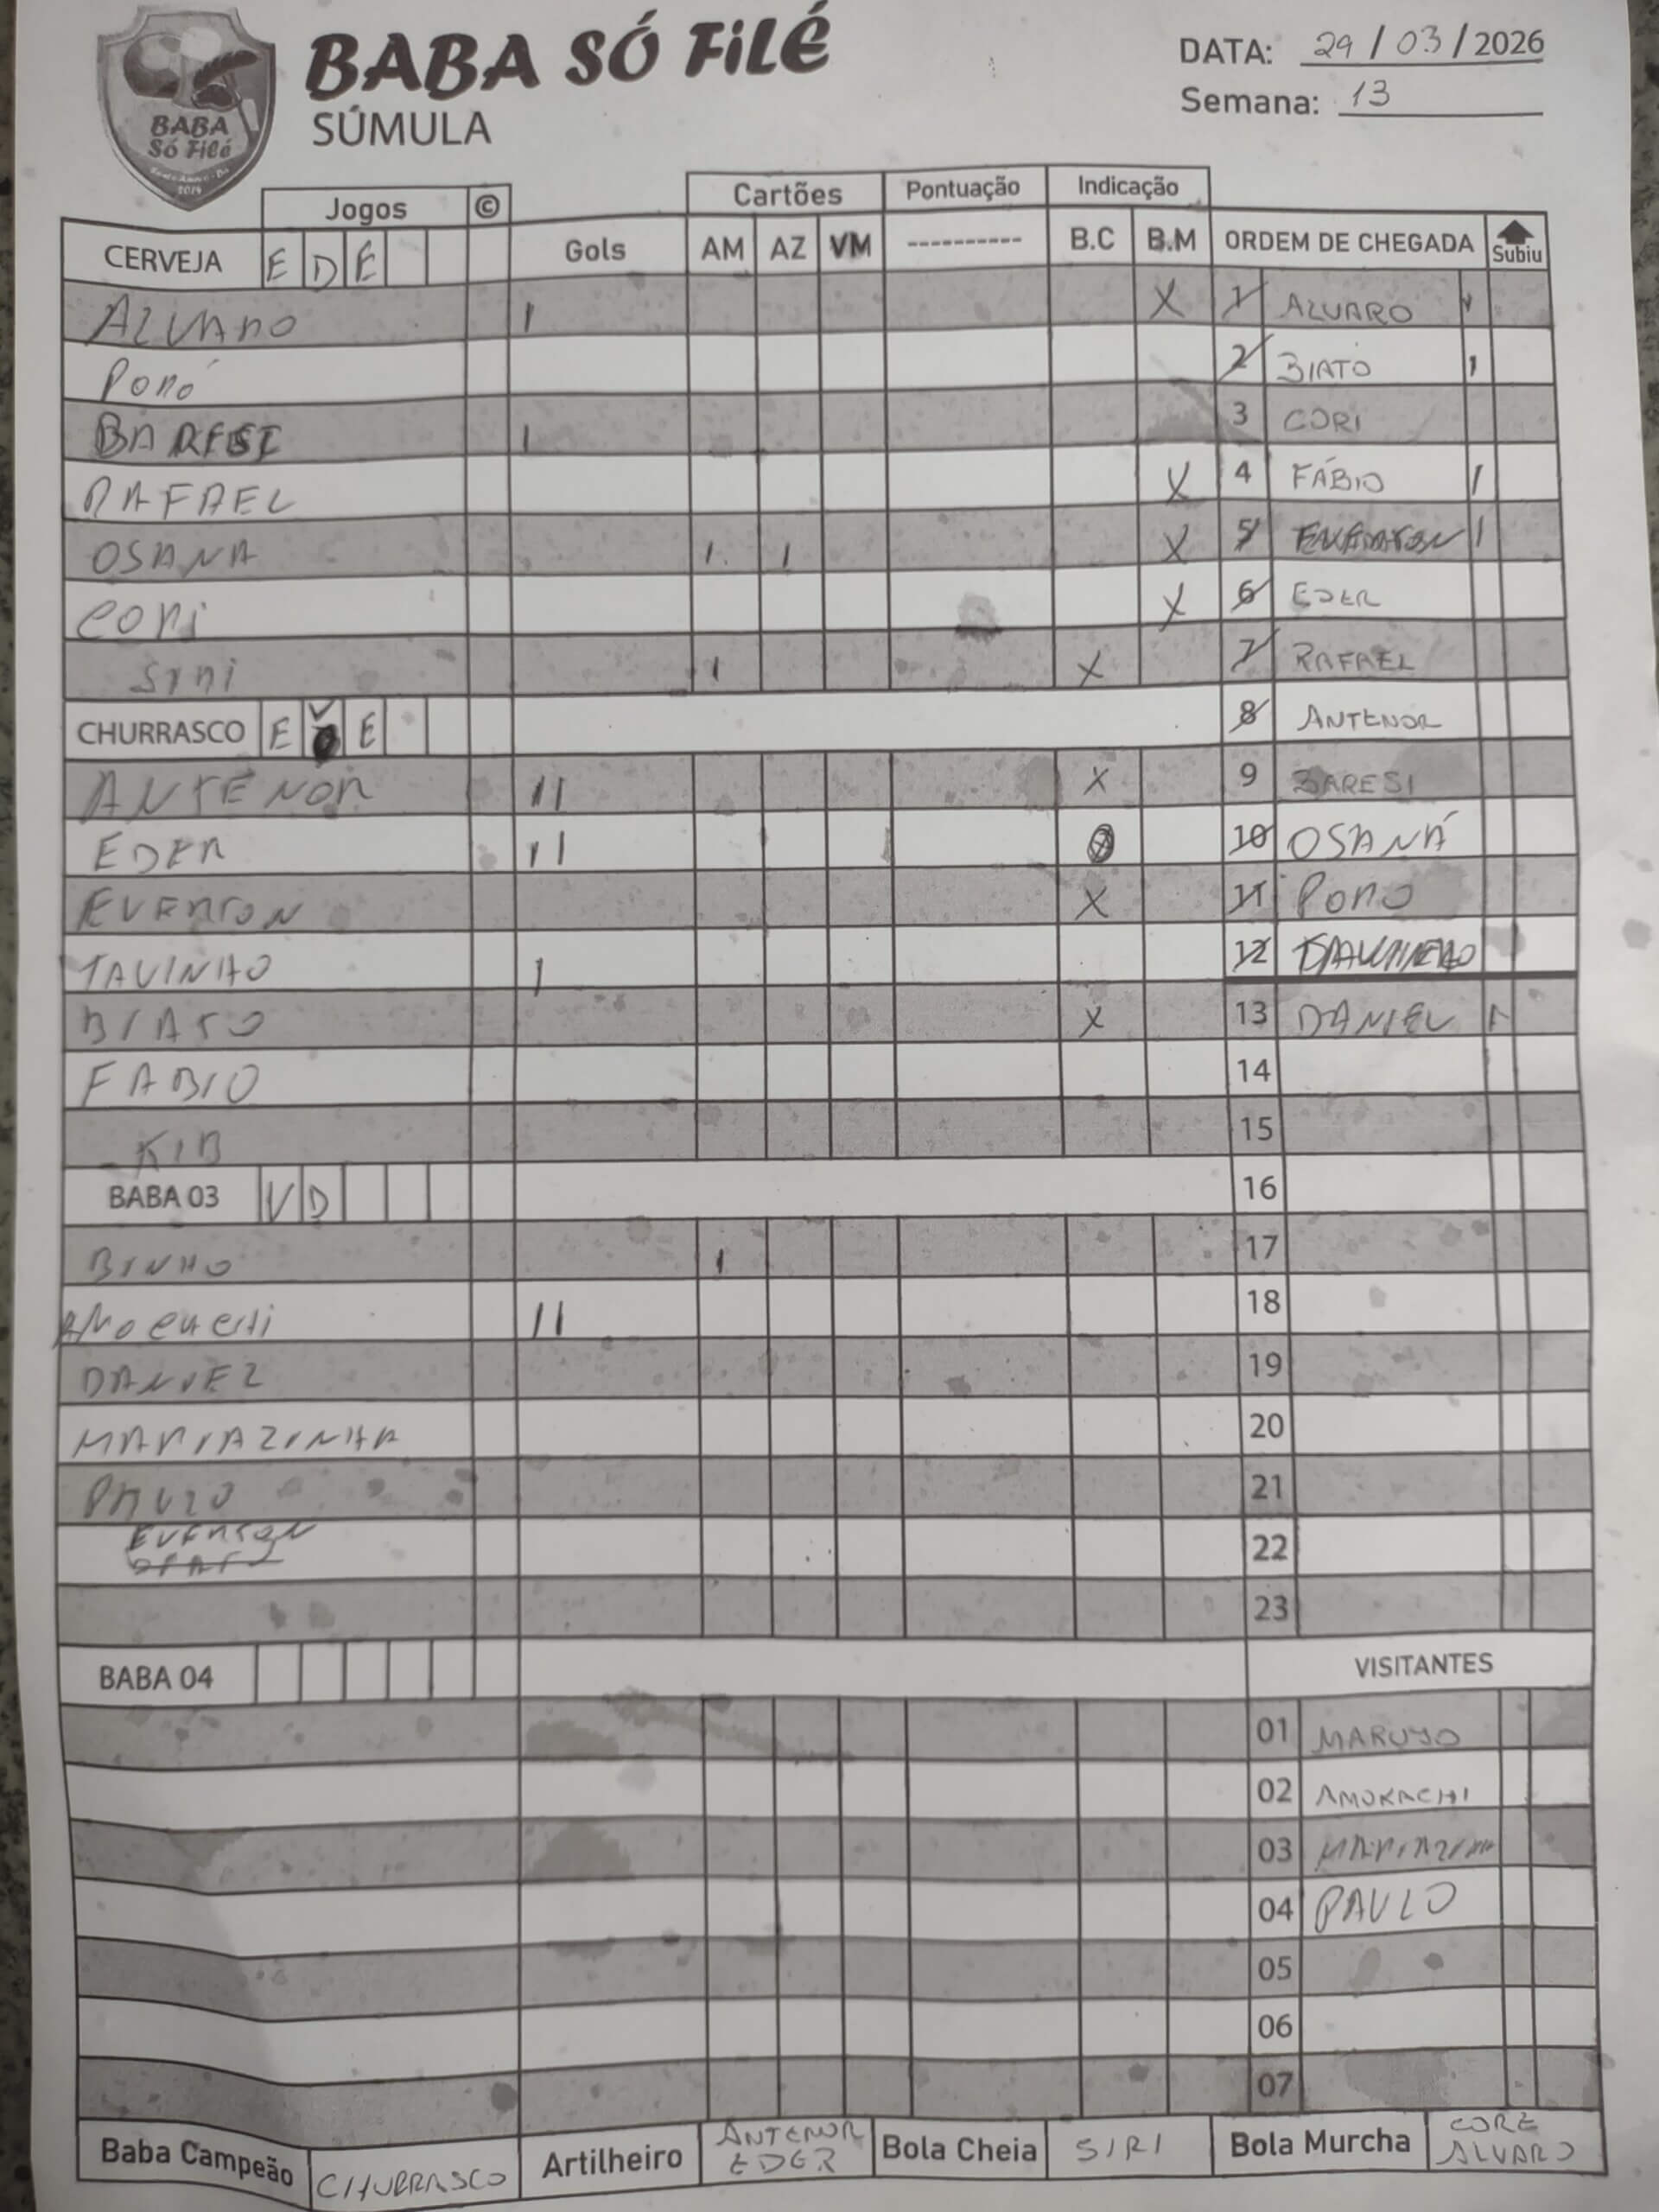 BABA SÓ FiLÉ
SÚMULA
BABA
Só Filé
2014
DATA: 29 / 03 / 2026
Semana: 13
Jogos © Cartões Pontuação Indicação
CERVEJA E D E Gols AM AZ VM ---------- B.C B.M ORDEM DE CHEGADA Subiu
ALVARO I X 1 ALVARO
PORÓ 2 BIATO I
BARESI I 3 CORI
RAFAEL X 4 FÁBIO I
OSANA I I X 5 EVERTON I
CORI X 6 EDER
SIRI I X 7 RAFAEL
CHURRASCO E V E 8 ANTENOR
ANTENOR II X 9 BARESI
EDER II X 10 OSANÁ
EVERTON X 11 PORO
TAVINHO I 12 TAVINHO
BIATO X 13 DANIEL
FABIO 14
KIB 15
BABA 03 V D 16
BINHO I 17
AMOCACHI II 18
DANIEL 19
MARIAZINHA 20
PAULO 21
EVERTON 22
23
BABA 04 VISITANTES
01 MARUJO
02 AMOKACHI
03 MARIAZINHA
04 PAULO
05
06
07
Baba Campeão CHURRASCO Artilheiro ANTENOR EDER Bola Cheia SIRI Bola Murcha CORE ALVARO